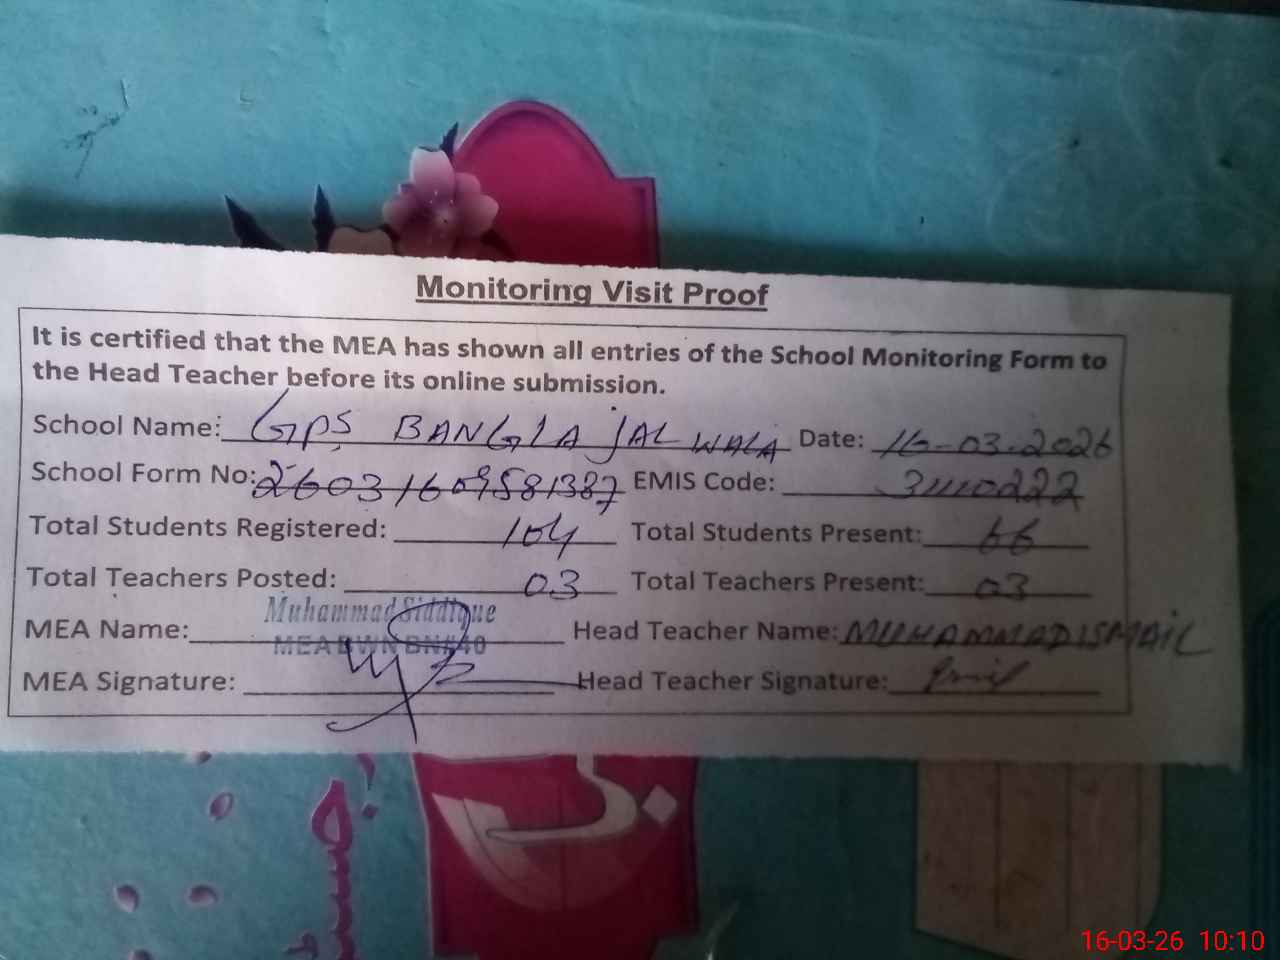 Monitoring Visit Proof
It is certified that the MEA has shown all entries of the School Monitoring Form to
the Head Teacher before its online submission.
School Name: GPS BANGLA JAL WALA Date: 16-03-2026
School Form No: 26031609581387 EMIS Code: 31110222
Total Students Registered: 104 Total Students Present: 66
Total Teachers Posted: 03 Total Teachers Present: 03
Muhammad Siddique
MEA Name: MEA BWN BN#40 Head Teacher Name: MUHAMMAD ISMAIL
MEA Signature: Head Teacher Signature:
16-03-26 10:10